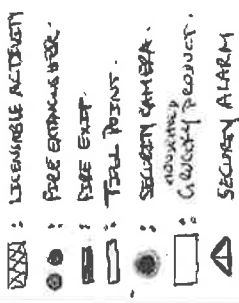 : LICENSABLE ACTIVITY
: FIRE EXTINGUISHER.
: FIRE EXIT.
: TILL POINT.
: SECURITY CAMERA.
: GROCERY PRODUCT.
: SECURITY ALARM